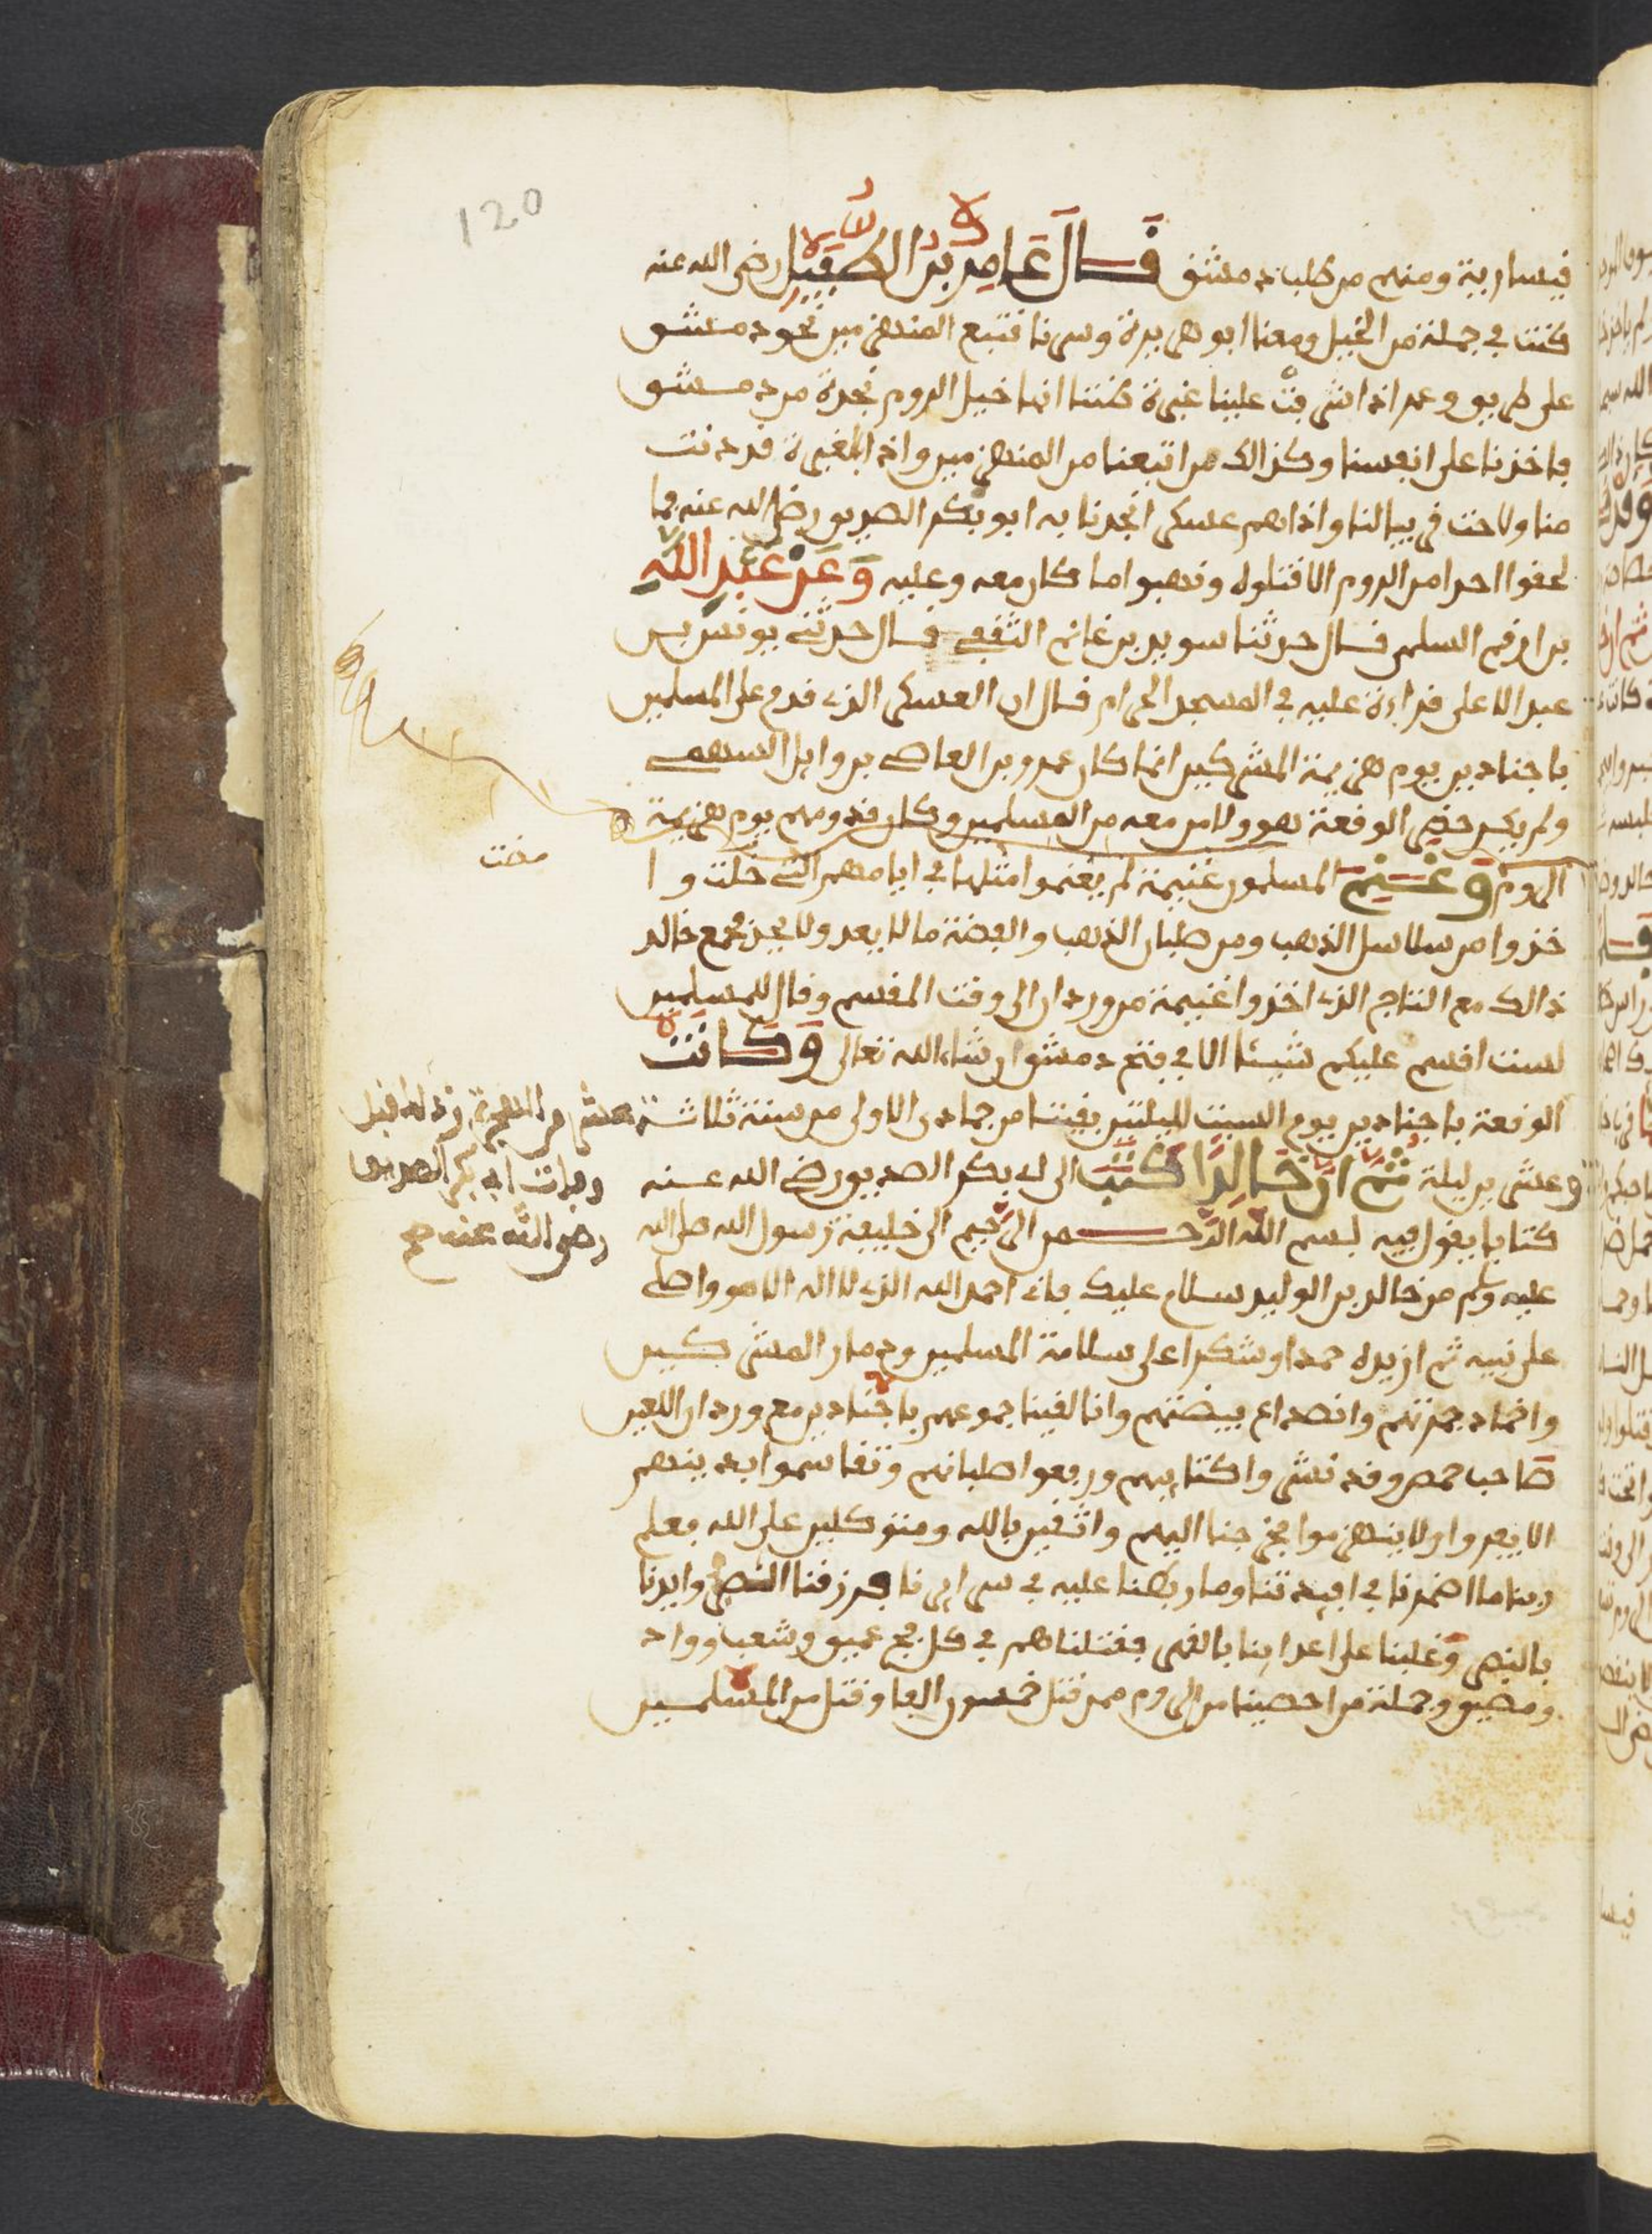 120
قيسارية ومنهم من طلب دمشق قال عامر بن الطفيل رضي الله عنه
كنت في جملة من الخيل ومعنا ابو هريرة وسرنا نتبع المنهزمين نحو دمشق
على طريق وعر اذ اشرفت علينا غبرة ظننا انها خيل الروم نجدة من دمشق
فاخذنا على انفسنا وكذالك من اتبعنا من المنهزمين واذا بالغبرة قد دنت
منا ولاحت في بيالنا واذا هم عسكر انجدنا به ابو بكر الصديق رضي الله عنه فما
لحقوا احدا من الروم الا قتلوه ونهبوا ما كان معه وعليه وعن عبد الله
بن ارقم السلمي قال حدثنا سويد بن غانم الثقفي قال حدثني يونس بن
عبد الاعلى قراءة عليه في المسجد الحرام قال ان العسكر الذي قدم على المسلمين
باجنادين يوم هزيمة المشركين انما كان عمرو بن العاصي بن وايل السهمي
ولم يكن حضر الوقعة هو ولا من معه من المسلمين وكان قدومهم يوم هزيمة
الروم وغنم المسلمون غنيمة لم يغنموا مثلها في ايامهم التي خلت وا
مضت
خذوا من سلاسل الذهب ومن صلبان الذهب والفضة ما لا يعد ولا يحد فجمع خالد
ذالك مع التاج الذي اخذوا غنيمة من وردان الى وقت المقسم وقال للمسلمين
لست اقسم عليكم شيئا الا في فتح دمشق ان شاء الله تعالى وكانت
الوقعة باجنادين يوم السبت لليلتين بقيتا من جمادى الاولى من سنة ثلاثة عشر من الهجرة وذلك قبل
وفات ابي بكر الصديق
رضي الله عنه صح
وعشرين ليلة ثم ان خالدا كتب الى ابي بكر الصديق رضي الله عنه
كتابا يقول فيه بسم الله الرحمن الرحيم الى خليفة رسول الله صلى الله
عليه وسلم من خالد بن الوليد سلام عليك فاني احمد الله الذي لا اله الا هو واصلي
على نبيه ثم ازيده حمدا وشكرا على سلامة المسلمين ودمار المشركين
واخماد جمرتهم وانصداع بيضتهم وانا لقينا جموعهم باجنادين مع وردان اللعين
صاحب حمص وقد نشروا كتايبهم ورفعوا صلبانهم وتقاسموا بدينهم
الا يفروا ولا ينهزموا فخرجنا اليهم واثقين بالله ومتوكلين على الله فعلم
ربنا ما اضمرنا في افيدتنا وما ربطنا عليه في سرايرنا فرزقنا النصر وايدنا
بالنصر وغلبنا على اعداينا بالقهر فقتلناهم في كل فج عميق وشعب وواد
ومضيق وجملة من احصينا من الروم ممن قتل خمسون الفا وقتل من المسلمين